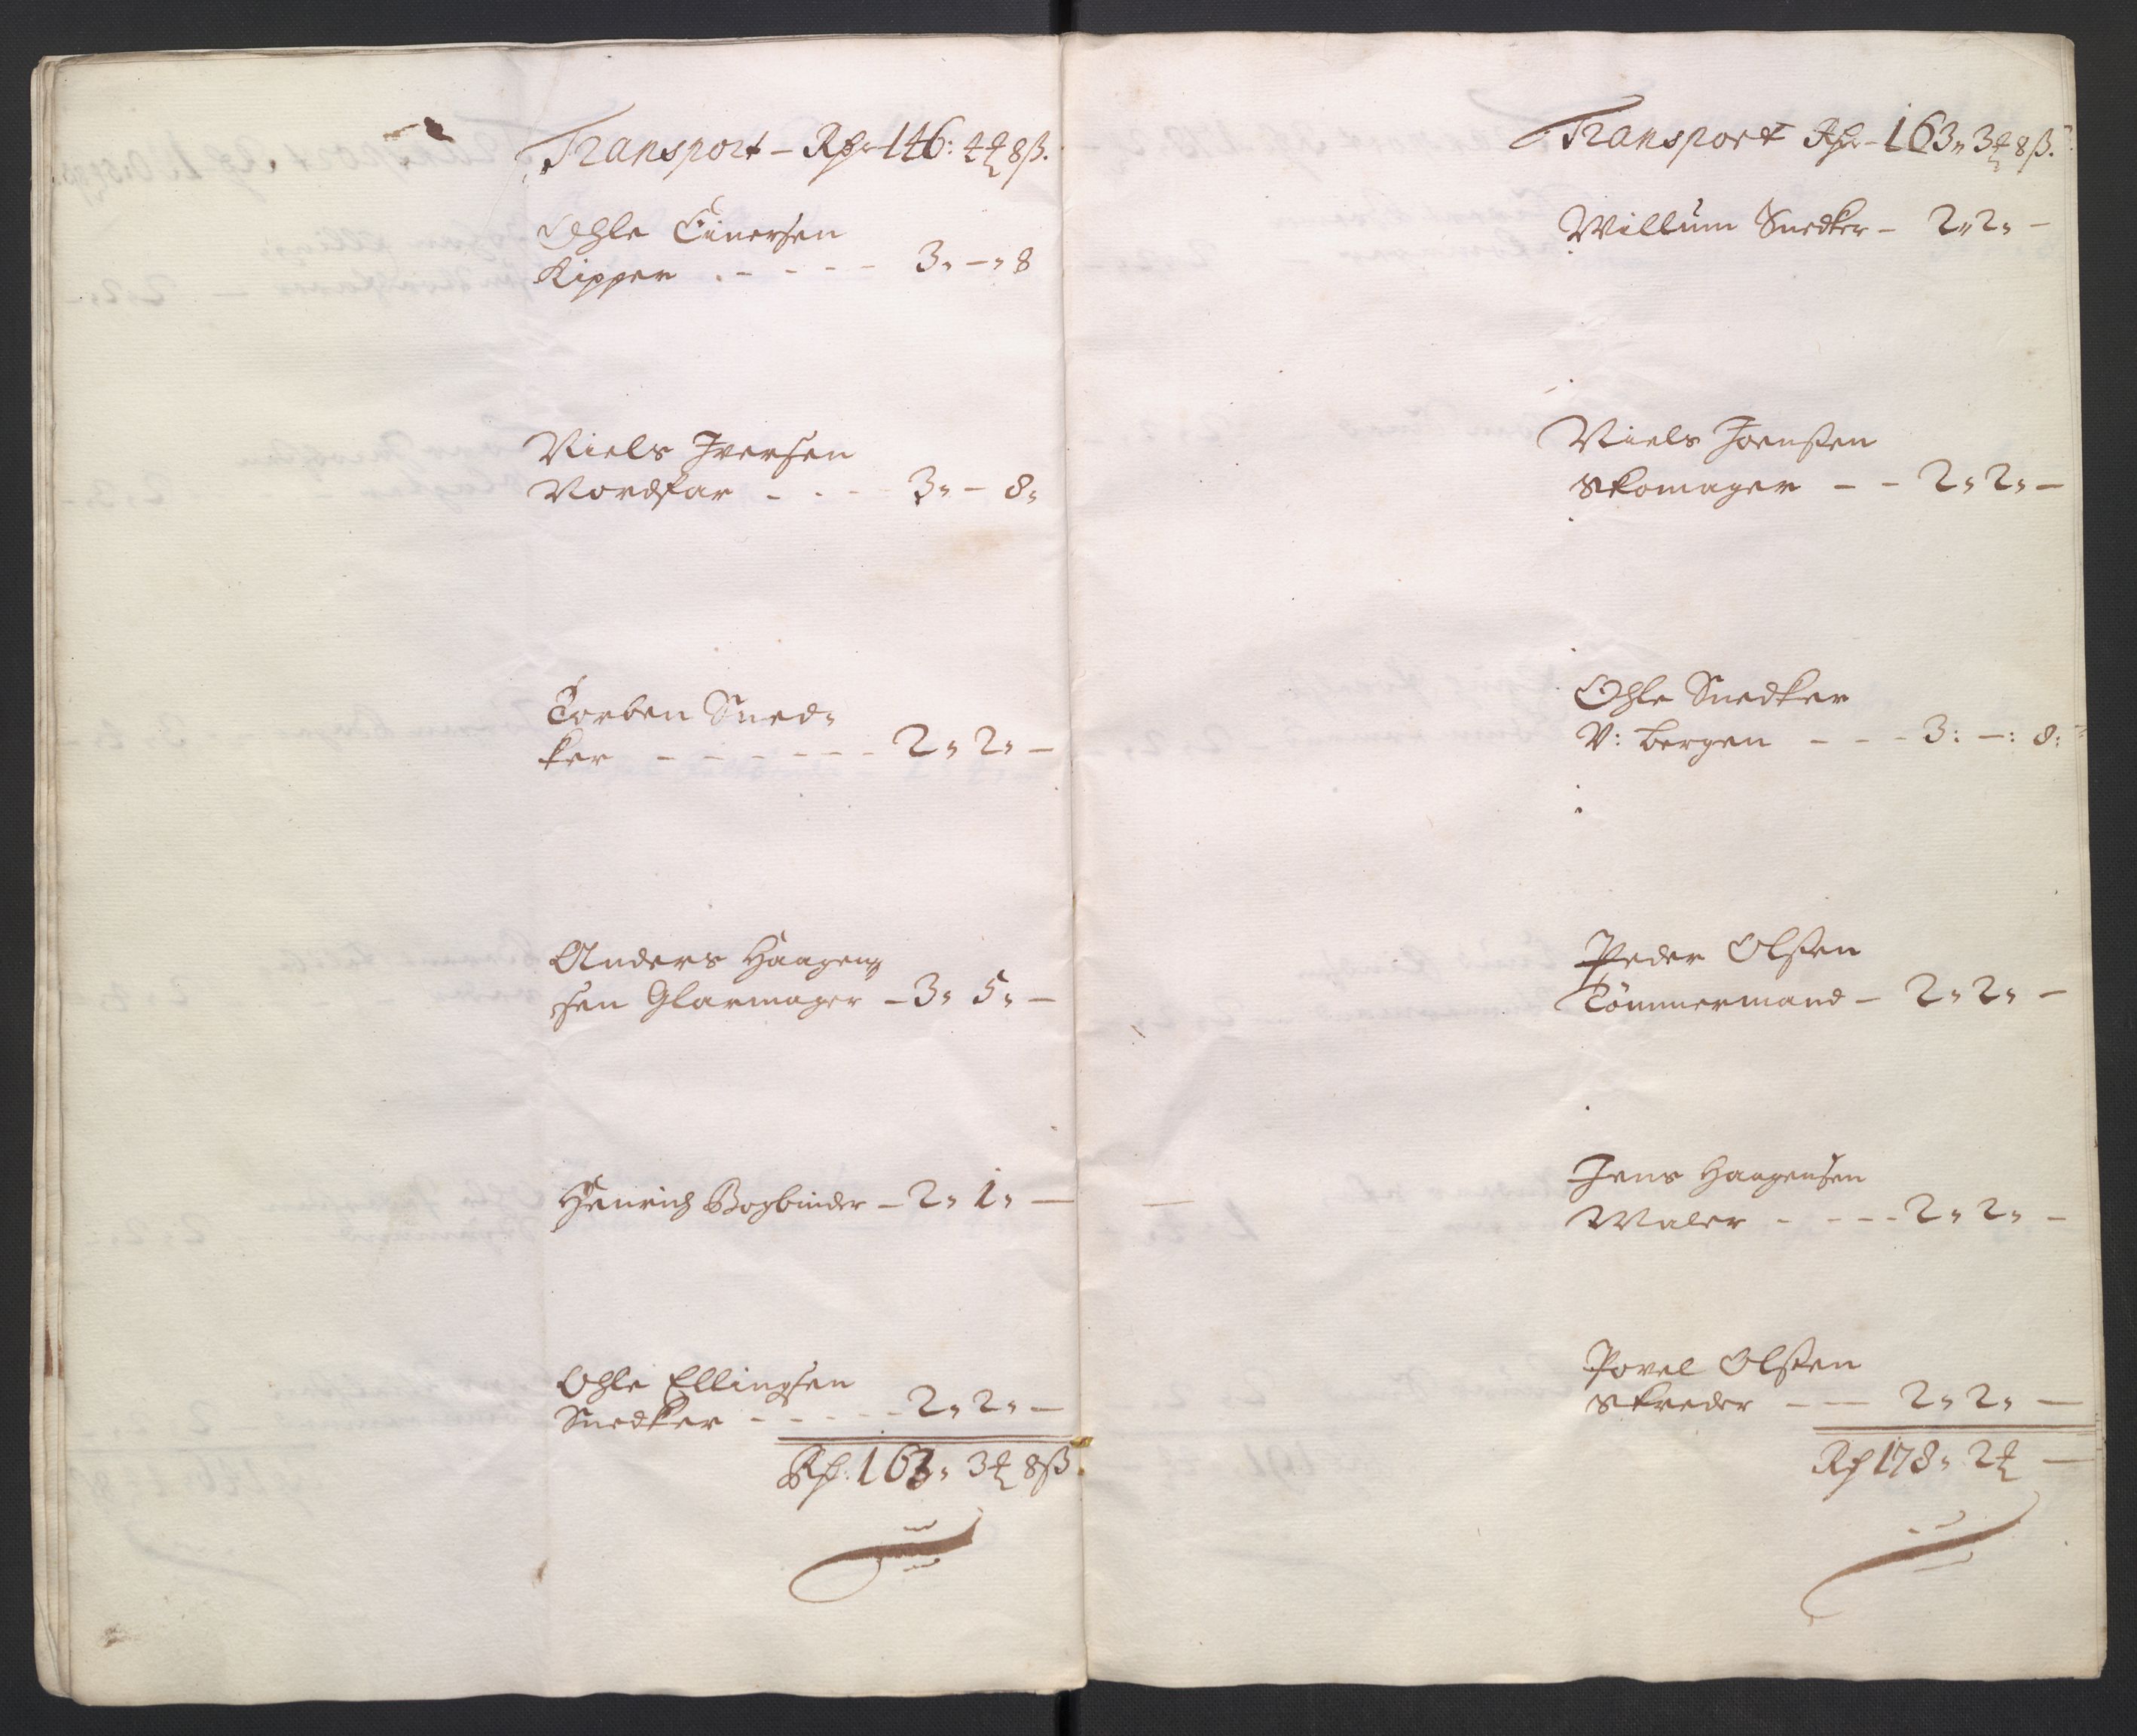 Transport – Rdr 146: 4 ꝑ 8 ß.
Ohle Einersen
Kipper . - - - - 3„ – „ 8
Niels Iversen
Nordfar - - - 3„ – 8„
Torben Sned„
ker - - - - - - - 2„ 2„ –
Anders Haagen„
sen Glarmager – 3„ 5„ –
Henrich Bogbinder – 2„ 1„ –
Ohle Ellingsen
Snedker - - - - - 2„ 2„ –
Rdr. 163„ 3 ꝑ 8 ß
Transport Rdr – 163„ 3 ꝑ 8 ß.
Willum Snedker – 2„ 2„ –
Niels Joensen
Skomager – – 2„ 2„ –
Ohle Snedker
V: bergen - - - 3: –: 8:
Peder Olsen
Tömmermand – 2„ 2„ –
Jens Haagensen
Maler - - - - 2„ 2„ –
Povel Olsen
Skreder – – 2„ 2„ –
Rdr 178„ 2 ꝑ –